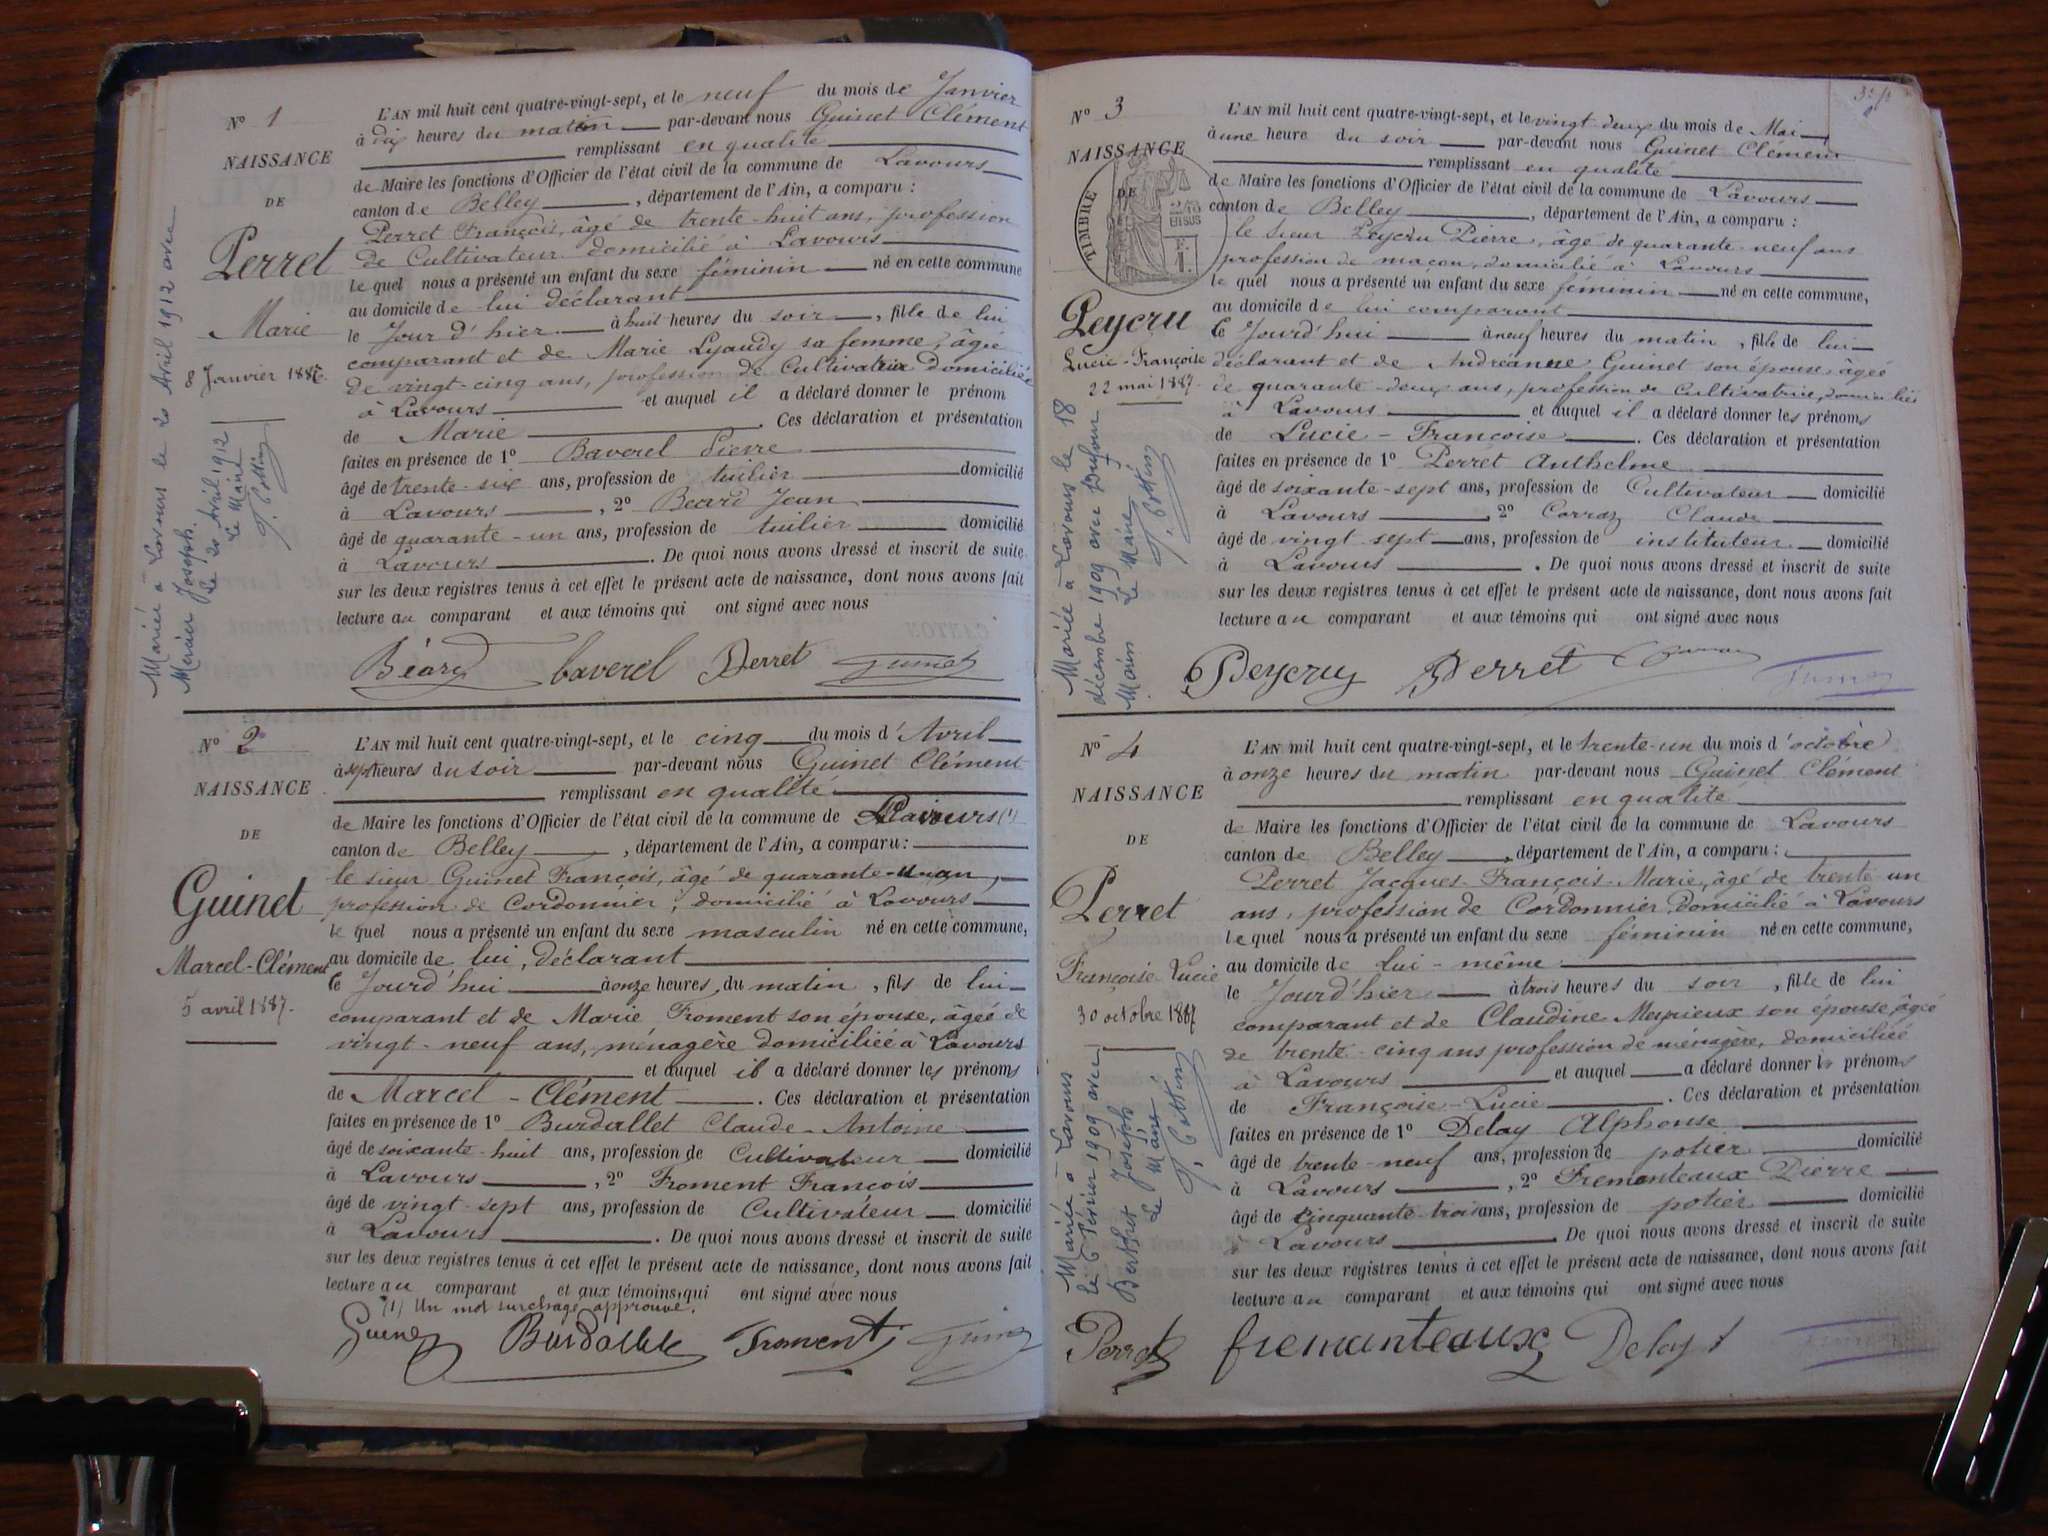 N° 1
NAISSANCE
DE
Perret
Marie
8 Janvier 1887.
Mariée à Lavours le 20 Avril 1912 avec
Mercier Joseph.
Le 20 Avril 1912
Le Maire
L'AN mil huit cent quatre-vingt-sept, et le neuf du mois de Janvier
à dix heures du matin par-devant nous Guinet Clément
remplissant en qualité
de Maire les fonctions d'Officier de l'état civil de la commune de Lavours
canton de Belley, département de l'Ain, a comparu :
Perret François, âgé de trente-huit ans, profession
de Cultivateur domicilié à Lavours
lequel nous a présenté un enfant du sexe féminin né en cette commune
au domicile de lui déclarant
le Jour d'hier à huit heures du soir, fille de lui
comparant et de Marie Lyaudy sa femme, âgée
de vingt-cinq ans, profession de Cultivatrice Domiciliée
à Lavours et auquel il a déclaré donner le prénom
de Marie. Ces déclaration et présentation
faites en présence de 1° Baverel Pierre
âgé de trente-six ans, profession de tuilier domicilié
à Lavours, 2° Béard Jean
âgé de quarante-un ans, profession de tuilier domicilié
à Lavours. De quoi nous avons dressé et inscrit de suite
sur les deux registres tenus à cet effet le présent acte de naissance, dont nous avons fait
lecture au comparant et aux témoins qui ont signé avec nous
Béard baverel Perret Guinet
N° 2
NAISSANCE
DE
Guinet
Marcel-Clément
5 avril 1887.
L'AN mil huit cent quatre-vingt-sept, et le cinq du mois d'Avril
à sept heures du soir par-devant nous Guinet Clément
remplissant en qualité
de Maire les fonctions d'Officier de l'état civil de la commune de Lavours (1)
canton de Belley, département de l'Ain, a comparu :
le sieur Guinet François, âgé de quarante-un an,
profession de Cordonnier, domicilié à Lavours
lequel nous a présenté un enfant du sexe masculin né en cette commune,
au domicile de lui, déclarant
le Jourd'hui à onze heures du matin, fils de lui
comparant et de Marie Froment son épouse, âgée de
vingt-neuf ans, ménagère domiciliée à Lavours
et auquel il a déclaré donner les prénoms
de Marcel-Clément. Ces déclaration et présentation
faites en présence de 1° Burdallet Claude-Antoine
âgé de soixante-huit ans, profession de Cultivateur domicilié
à Lavours, 2° Froment François
âgé de vingt-sept ans, profession de Cultivateur domicilié
à Lavours. De quoi nous avons dressé et inscrit de suite
sur les deux registres tenus à cet effet le présent acte de naissance, dont nous avons fait
lecture au comparant et aux témoins qui ont signé avec nous
(1) Un mot surchargé approuvé.
Guinet Burdallet Froment Guinet
N° 3
NAISSANCE
DE
TIMBRE
2/10
EN SUS
Peycru
Lucie-Françoise
22 mai 1887.
Mariée à Lavours le 18
décembre 1909 avec Dufour
Marin Le Maire
L'AN mil huit cent quatre-vingt-sept, et le vingt-deux du mois de Mai
à une heure du soir par-devant nous Guinet Clément
remplissant en qualité
de Maire les fonctions d'Officier de l'état civil de la commune de Lavours
canton de Belley, département de l'Ain, a comparu :
le sieur Peycru Pierre, âgé de quarante-neuf ans
profession de maçon, domicilié à Lavours
lequel nous a présenté un enfant du sexe féminin né en cette commune,
au domicile de lui comparant
le Jourd'hui à neuf heures du matin, fille de lui
déclarant et de Andréanne Guinet son épouse âgée
de quarante-deux ans, profession de Cultivatrice, domiciliée
à Lavours et auquel il a déclaré donner les prénoms
de Lucie-Françoise. Ces déclaration et présentation
faites en présence de 1° Perret Anthelme
âgé de soixante-sept ans, profession de Cultivateur domicilié
à Lavours, 2° Corraz Claude
âgé de vingt sept ans, profession de instituteur domicilié
à Lavours. De quoi nous avons dressé et inscrit de suite
sur les deux registres tenus à cet effet le présent acte de naissance, dont nous avons fait
lecture au comparant et aux témoins qui ont signé avec nous
Peycru Perret Guinet
N° 4
NAISSANCE
DE
Perret
Françoise Lucie
30 octobre 1887
Mariée à Lavours
le 6 Février 1909 avec
Berthet Joseph
Le Maire
L'AN mil huit cent quatre-vingt-sept, et le trente-un du mois d'octobre
à onze heures du matin par-devant nous Guinet Clément
remplissant en qualité
de Maire les fonctions d'Officier de l'état civil de la commune de Lavours
canton de Belley, département de l'Ain, a comparu :
Perret Jacques-François-Marie, âgé de trente-un
ans, profession de Cordonnier, domicilié à Lavours
lequel nous a présenté un enfant du sexe féminin né en cette commune,
au domicile de lui-même
le Jourd'hier à trois heures du soir, fille de lui
comparant et de Claudine Meyrieux son épouse âgée
de trente-cinq ans profession de ménagère, domiciliée
à Lavours et auquel a déclaré donner les prénoms
de Françoise-Lucie. Ces déclaration et présentation
faites en présence de 1° Delay Alphonse
âgé de trente-neuf ans, profession de potier domicilié
à Lavours, 2° Fremonteaux Pierre
âgé de cinquante-trois ans, profession de potier domicilié
à Lavours. De quoi nous avons dressé et inscrit de suite
sur les deux registres tenus à cet effet le présent acte de naissance, dont nous avons fait
lecture au comparant et aux témoins qui ont signé avec nous
Perret fremonteaux Delay